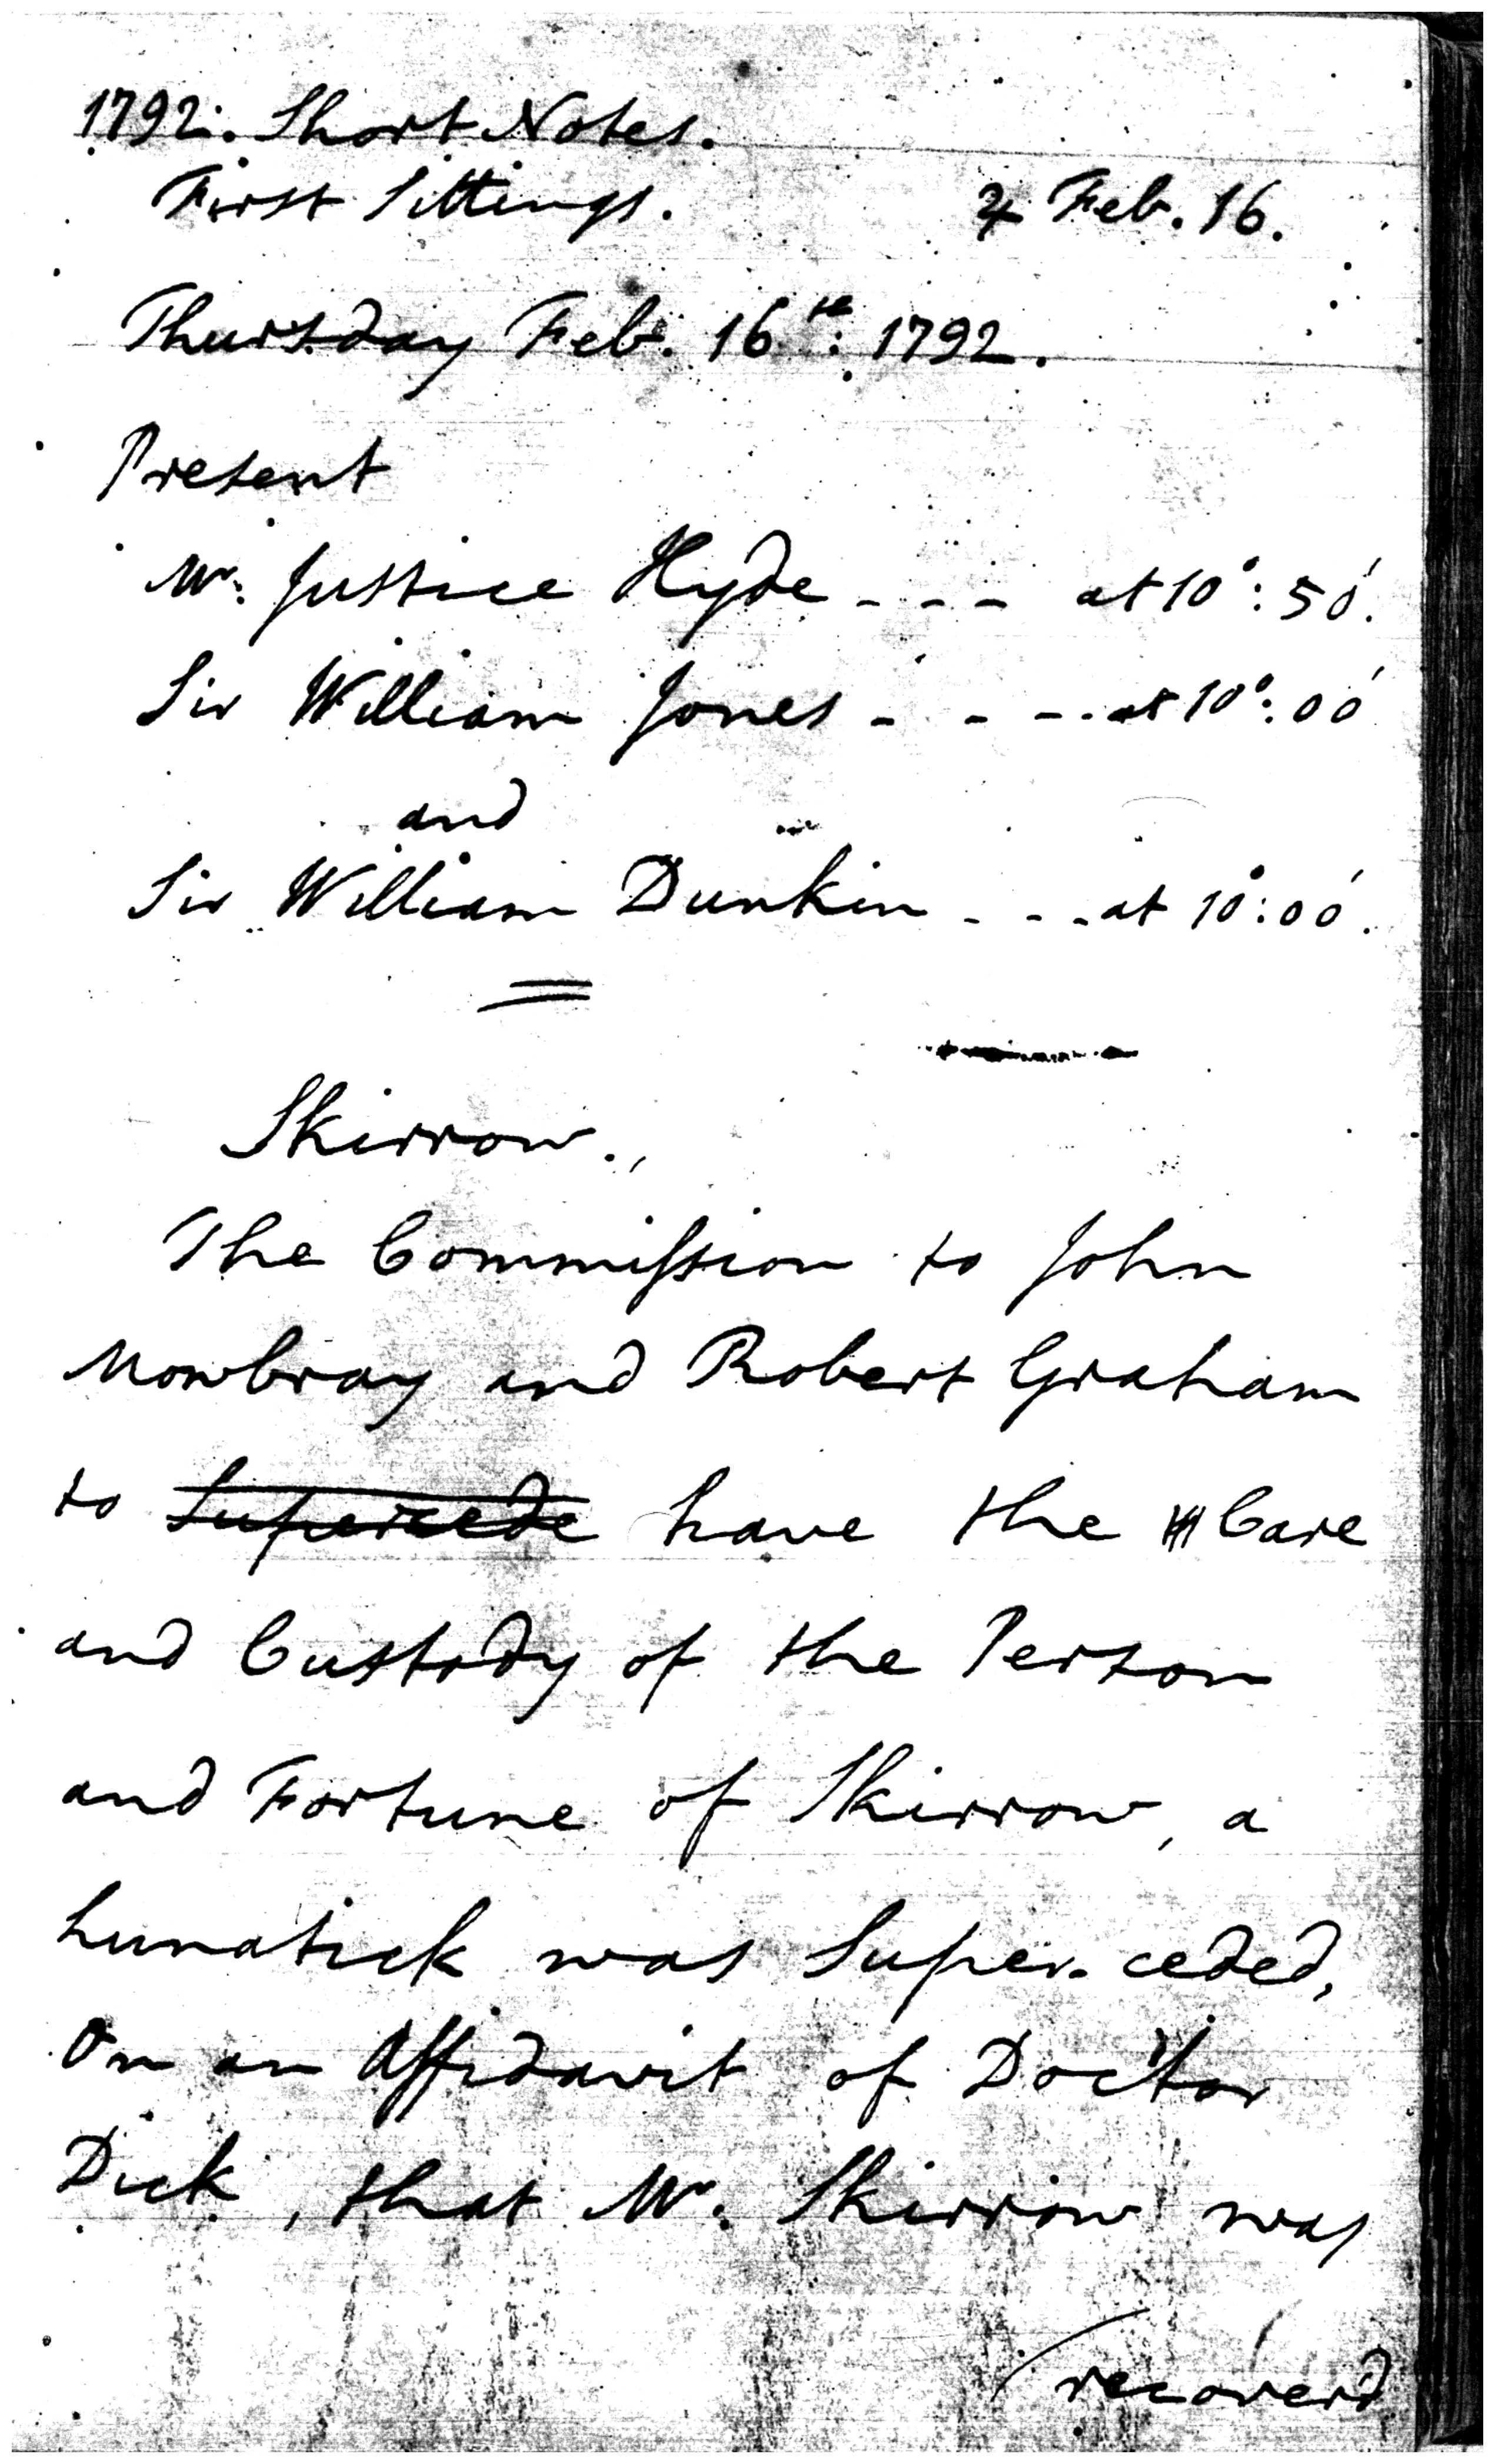 1792. Short Notes.
First Sittings. ♃ Feb. 16.
Thursday Feb. 16th: 1792.
Present
Mr: Justice Hyde - - - at 10°: 50'.
Sir William Jones - - - at 10°: 00'
and
Sir William Dunkin - - - at 10°: 00'.
Skirrow.
The Commiſsion to John
Mowbray and Robert Graham
to Supercede have the Care
and Custody of the Person
and Fortune of Skirrow, a
Lunatick was Super-ceded,
On an Affidavit of Doctor
Dick, that Mr: Skirrow was
recover'd